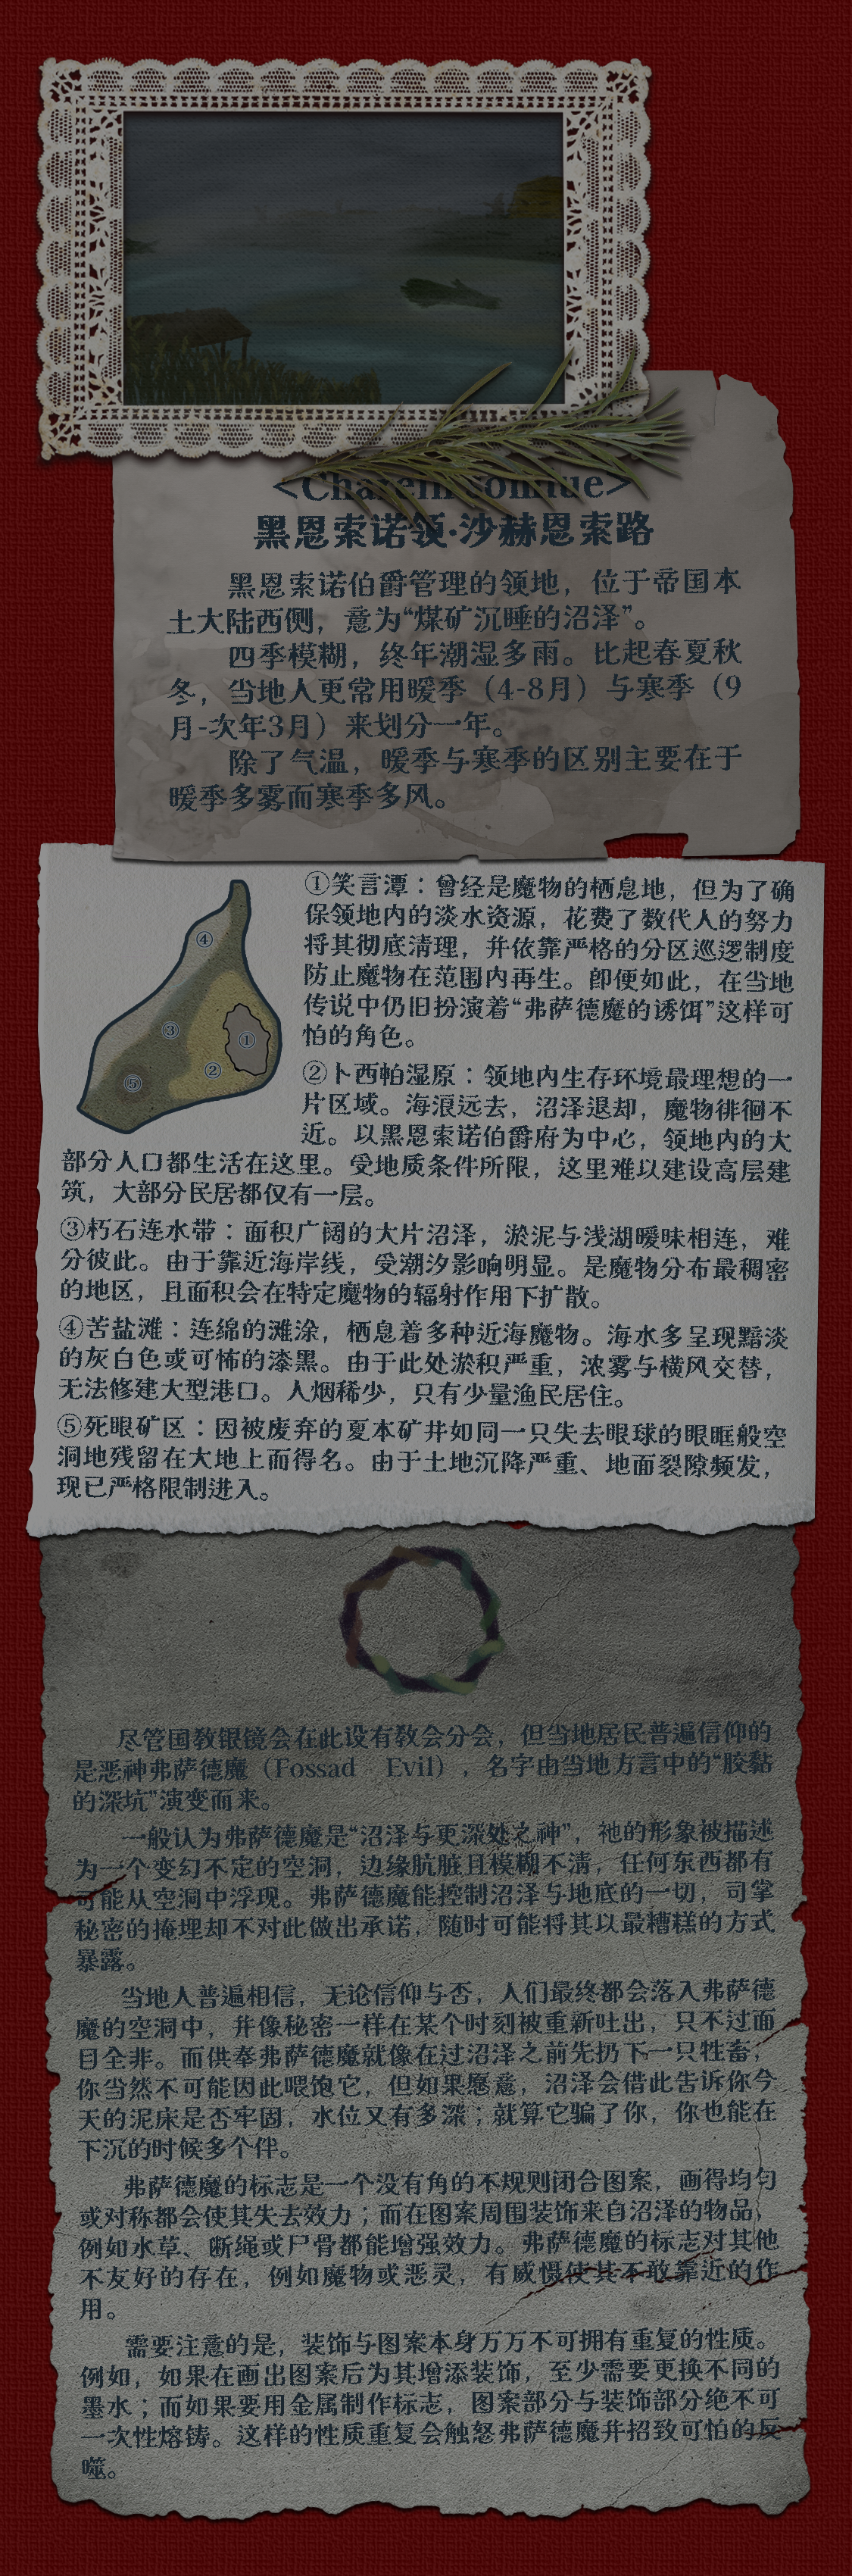 黑恩索诺领·沙赫恩索路
黑恩索诺伯爵管理的领地，位于帝国本
土大陆西侧，意为“煤矿沉睡的沼泽”。
四季模糊，终年潮湿多雨。比起春夏秋
冬，当地人更常用暖季（4-8月）与寒季（9
月-次年3月）来划分一年。
除了气温，暖季与寒季的区别主要在于
暖季多雾而寒季多风。
①笑言潭：曾经是魔物的栖息地，但为了确
保领地内的淡水资源，花费了数代人的努力
将其彻底清理，并依靠严格的分区巡逻制度
防止魔物在范围内再生。即便如此，在当地
传说中仍旧扮演着“弗萨德魔的诱饵”这样可
怕的角色。
④
③
①
②
⑤
②卜西帕湿原：领地内生存环境最理想的一
片区域。海浪远去，沼泽退却，魔物徘徊不
近。以黑恩索诺伯爵府为中心，领地内的大
部分人口都生活在这里。受地质条件所限，这里难以建设高层建
筑，大部分民居都仅有一层。
③朽石连水带：面积广阔的大片沼泽，淤泥与浅湖暧昧相连，难
分彼此。由于靠近海岸线，受潮汐影响明显。是魔物分布最稠密
的地区，且面积会在特定魔物的辐射作用下扩散。
④苦盐滩：连绵的滩涂，栖息着多种近海魔物。海水多呈现黯淡
的灰白色或可怖的漆黑。由于此处淤积严重，浓雾与横风交替，
无法修建大型港口。人烟稀少，只有少量渔民居住。
⑤死眼矿区：因被废弃的夏本矿井如同一只失去眼球的眼眶般空
洞地残留在大地上而得名。由于土地沉降严重、地面裂隙频发，
现已严格限制进入。
尽管国教银镜会在此设有教会分会，但当地居民普遍信仰的
是恶神弗萨德魔（Fossad Evil），名字由当地方言中的“胶黏
的深坑”演变而来。
一般认为弗萨德魔是“沼泽与更深处之神”，祂的形象被描述
为一个变幻不定的空洞，边缘肮脏且模糊不清，任何东西都有
可能从空洞中浮现。弗萨德魔能控制沼泽与地底的一切，司掌
秘密的掩埋却不对此做出承诺，随时可能将其以最糟糕的方式
暴露。
当地人普遍相信，无论信仰与否，人们最终都会落入弗萨德
魔的空洞中，并像秘密一样在某个时刻被重新吐出，只不过面
目全非。而供奉弗萨德魔就像在过沼泽之前先扔下一只牲畜，
你当然不可能因此喂饱它，但如果愿意，沼泽会借此告诉你今
天的泥床是否牢固，水位又有多深；就算它骗了你，你也能在
下沉的时候多个伴。
弗萨德魔的标志是一个没有角的不规则闭合图案，画得均匀
或对称都会使其失去效力；而在图案周围装饰来自沼泽的物品，
例如水草、断绳或尸骨都能增强效力。弗萨德魔的标志对其他
不友好的存在，例如魔物或恶灵，有威慑使其不敢靠近的作
用。
需要注意的是，装饰与图案本身万万不可拥有重复的性质。
例如，如果在画出图案后为其增添装饰，至少需要更换不同的
墨水；而如果要用金属制作标志，图案部分与装饰部分绝不可
一次性熔铸。这样的性质重复会触怒弗萨德魔并招致可怕的反
噬。